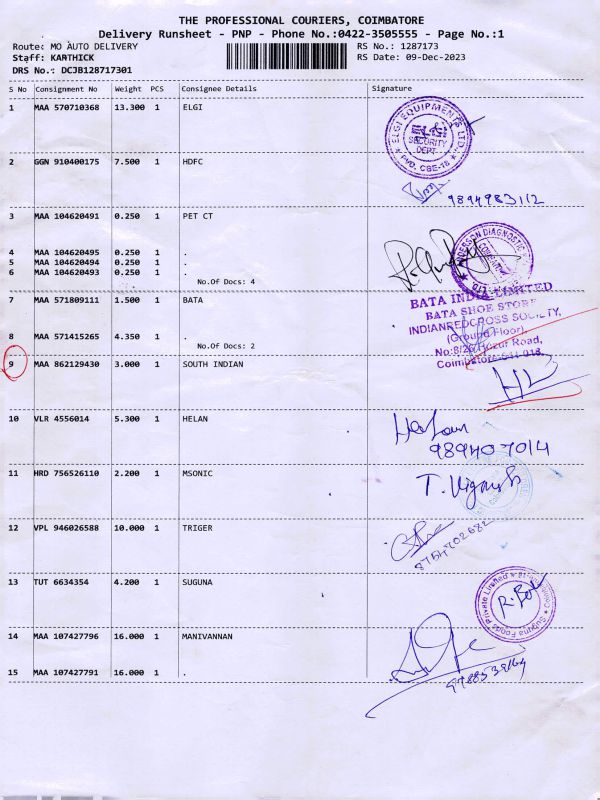 THE PROFESSIONAL COURIERS, COIMBATORE
Delivery Runsheet - PNP - Phone No.:0422-3505555 - Page No.:1
Route: MO AUTO DELIVERY RS No.: 1287173
Staff: KARTHICK RS Date: 09-Dec-2023
DRS No.: DCJB128717301
S No Consignment No Weight PCS Consignee Details Signature
1 MAA 570710368 13.300 1 ELGI
ELGI EQUIPMENTS LTD.
SECURITY
DEPT
PVD. CBE-18
2 GGN 910400175 7.500 1 HDFC
9894983112
3 MAA 104620491 0.250 1 PET CT
4 MAA 104620495 0.250 1 .
5 MAA 104620494 0.250 1 .
6 MAA 104620493 0.250 1 .
No.Of Docs: 4
DIAGNOSTIC
7 MAA 571809111 1.500 1 BATA
BATA INDIA LIMITED
BATA SHOE STORE
INDIANREDCROSS SOCIETY,
(Ground Floor),
No:8/26 Huzur Road,
Coimbatore-641 018.
8 MAA 571415265 4.350 1 .
No.Of Docs: 2
9 MAA 862129430 3.000 1 SOUTH INDIAN
10 VLR 4556014 5.300 1 HELAN
9894070114
11 HRD 756526110 2.200 1 MSONIC
T. Vignesh
12 VPL 946026588 10.000 1 TRIGER
13 TUT 6634354 4.200 1 SUGUNA
Suguna Foods Private Limited
14 MAA 107427796 16.000 1 MANIVANNAN
15 MAA 107427791 16.000 1 .